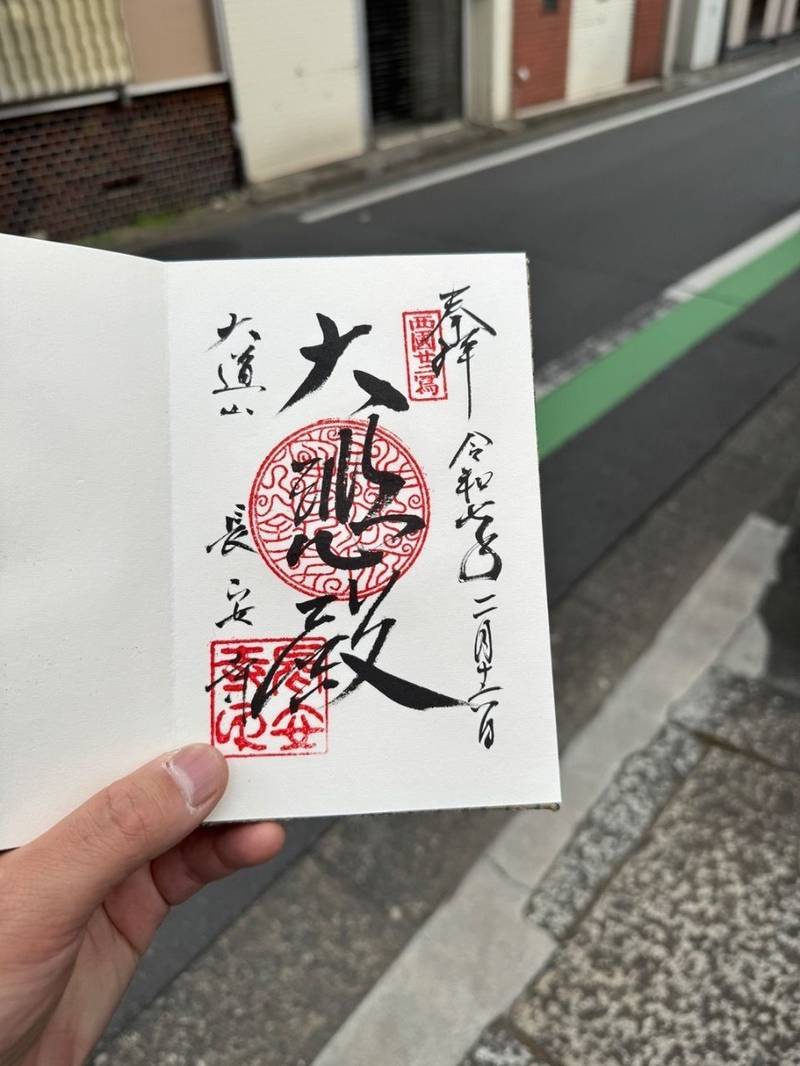 奉拝
西国廿三寫
令和七年二月十一日
大悲殿
大道山
長安寺
長安寺印